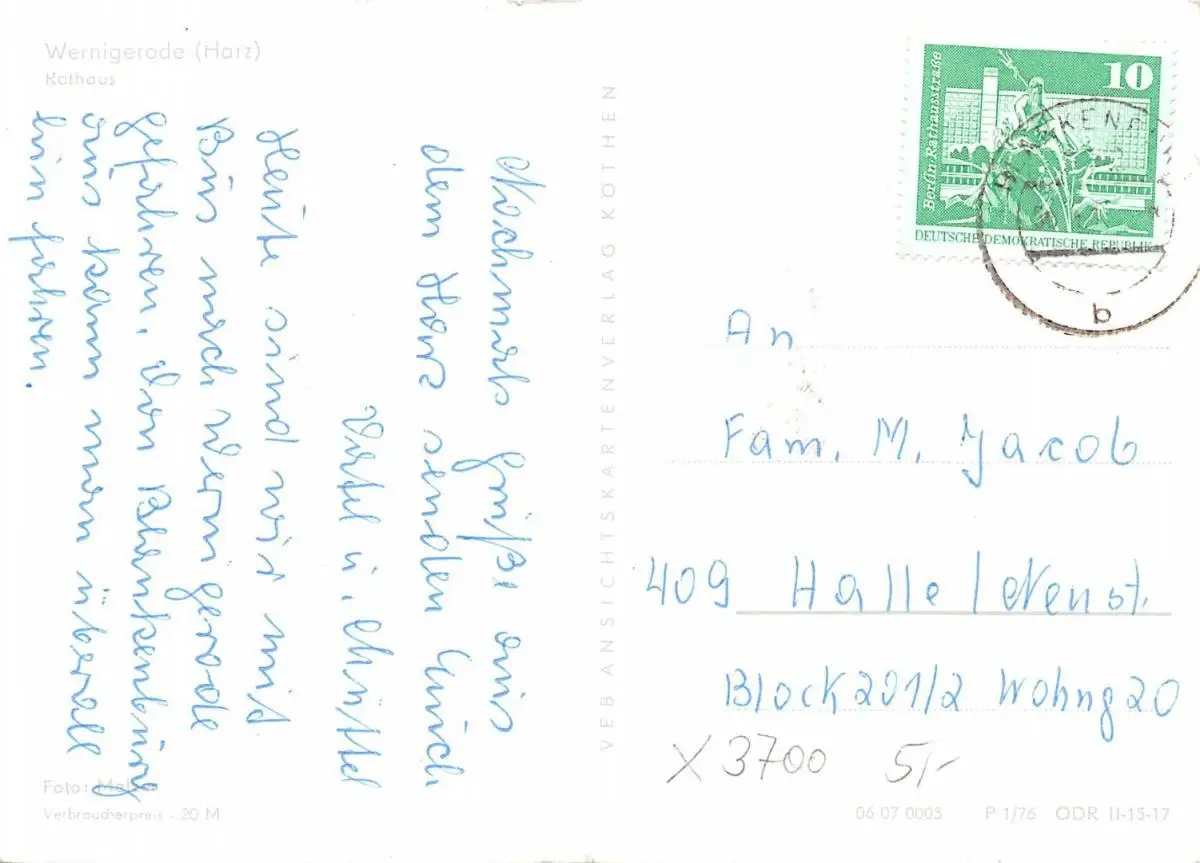 Wernigerode (Harz)
Rathaus
Nochmals Grüße aus
dem Harz senden Euch
Vatel u. Muttel
Heute sind wir mit
Bus nach Wernigerode
gefahren. Von Blankenburg
aus kann man überall
hin fahren.
Foto:
Verbraucherpreis -.20 M
VEB ANSICHTSKARTENVERLAG KÖTHEN
10
Berlin Rathausstraße
DEUTSCHE DEMOKRATISCHE REPUBLIK
b
An
Fam. M. Jacob
409 Halle / Neust.
Block 201/2 Wohng 20
X 3700 5,-
06 07 0005 P 1/76 ODR II-15-17